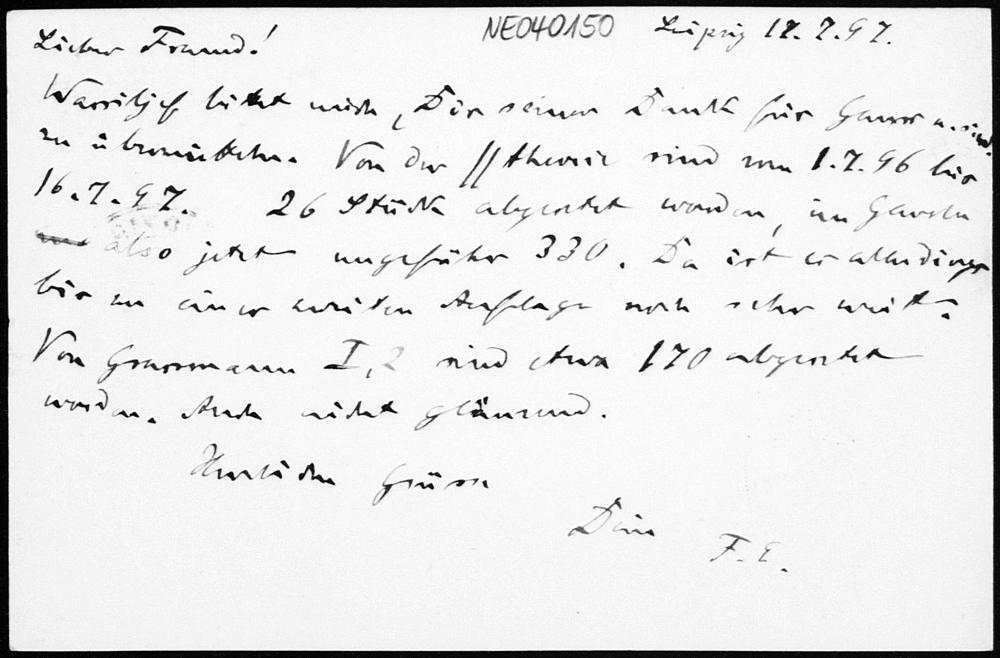 NE040150 Leipzig 17.7.97.
Lieber Freund!
Wassiljef bittet mich, Dir seinen Dank für Gauss u.
zu übermitteln. Von der //theorie sind vom 1.7.96 bis
16.7.97. 26 Stück abgesetzt worden, im Ganzen
also jetzt ungefähr 330. Da ist es allerdings
bis zu einer zweiten Auflage noch sehr weit.
Von Grassmann I,2 sind etwa 170 abgesetzt
worden. Auch nicht glänzend.
Herzliche Grüsse
Dein F.E.